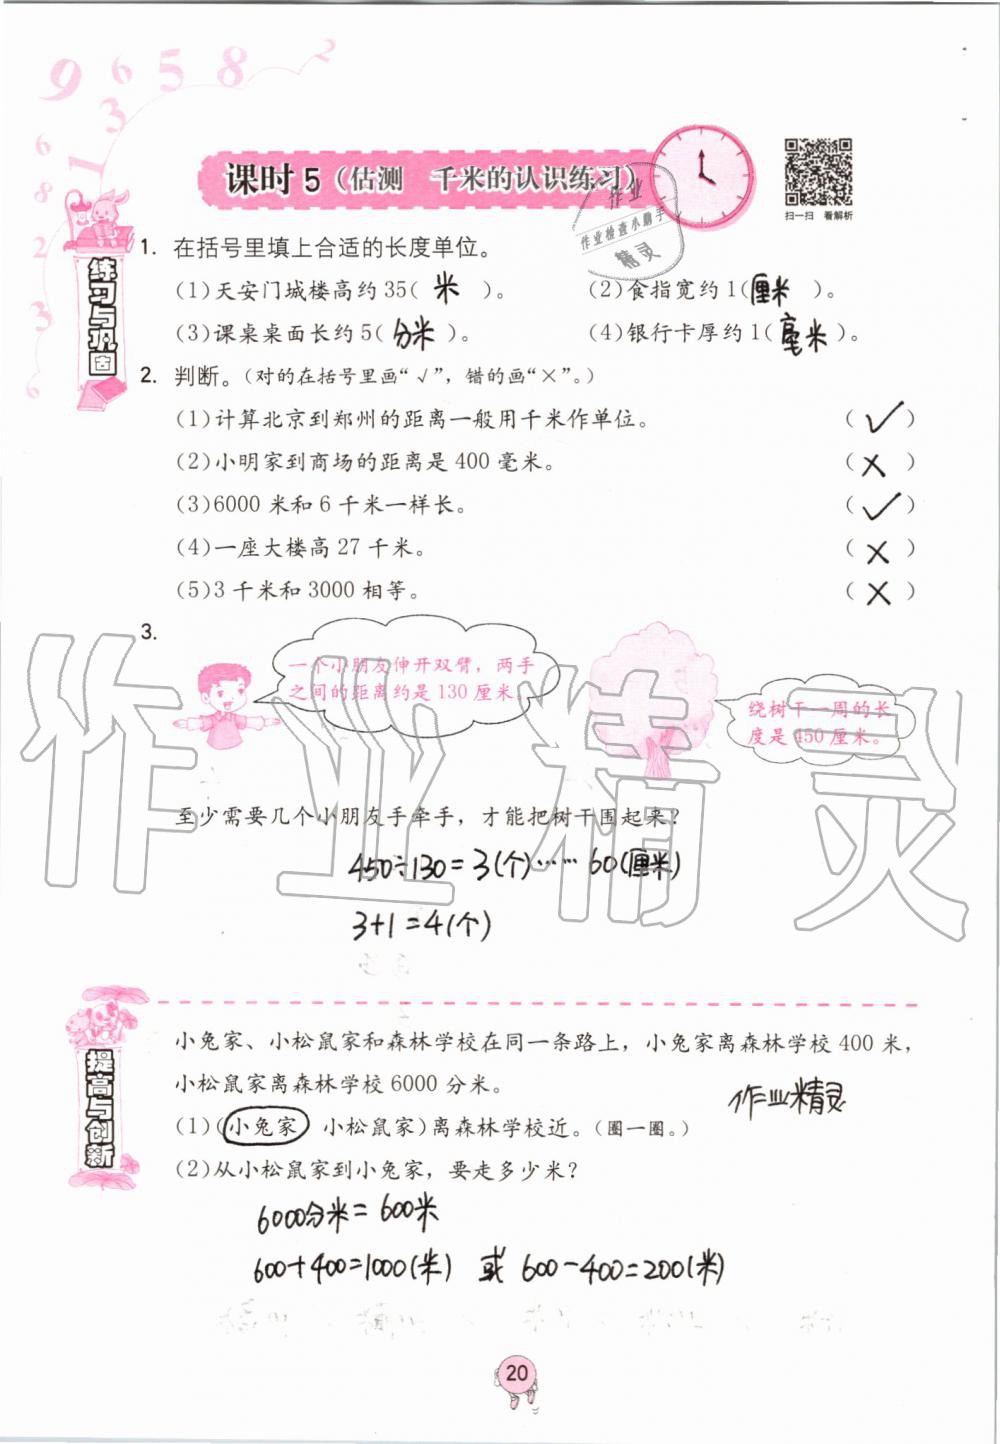 9 6 5 8 2
3
1
6
8
2
3
6
课时5(估测 千米的认识练习)
扫一扫 看解析
作业
作业检查小助手
精灵
练习与巩固
1. 在括号里填上合适的长度单位。
(1)天安门城楼高约35(米)。 (2)食指宽约1(厘米)。
(3)课桌桌面长约5(分米)。 (4)银行卡厚约1(毫米)。
2. 判断。(对的在括号里画“√”，错的画“×”。)
(1)计算北京到郑州的距离一般用千米作单位。 (✓)
(2)小明家到商场的距离是400毫米。 (×)
(3)6000米和6千米一样长。 (✓)
(4)一座大楼高27千米。 (×)
(5)3千米和3000相等。 (×)
3.
一个小朋友伸开双臂，两手
之间的距离约是130厘米。
绕树干一周的长
度是450厘米。
作业精灵
至少需要几个小朋友手牵手，才能把树干围起来?
450÷130=3(个)……60(厘米)
3+1=4(个)
提高与创新
小兔家、小松鼠家和森林学校在同一条路上，小兔家离森林学校400米，
小松鼠家离森林学校6000分米。
作业精灵
(1)(小兔家 小松鼠家)离森林学校近。(圈一圈。)
(2)从小松鼠家到小兔家，要走多少米?
6000分米=600米
600+400=1000(米) 或 600-400=200(米)
20